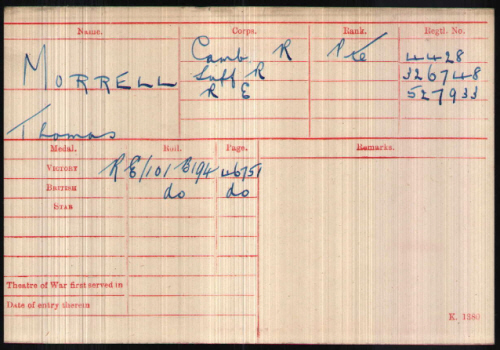 Name. Corps. Rank. Regtl. No.
Camb R Pte 4428
MORRELL Suff R 326748
R E 527933
Thomas
Medal. Roll. Page. Remarks.
VICTORY RE/101 B194 46751
BRITISH do do
STAR
Theatre of War first served in
Date of entry therein
K. 1380